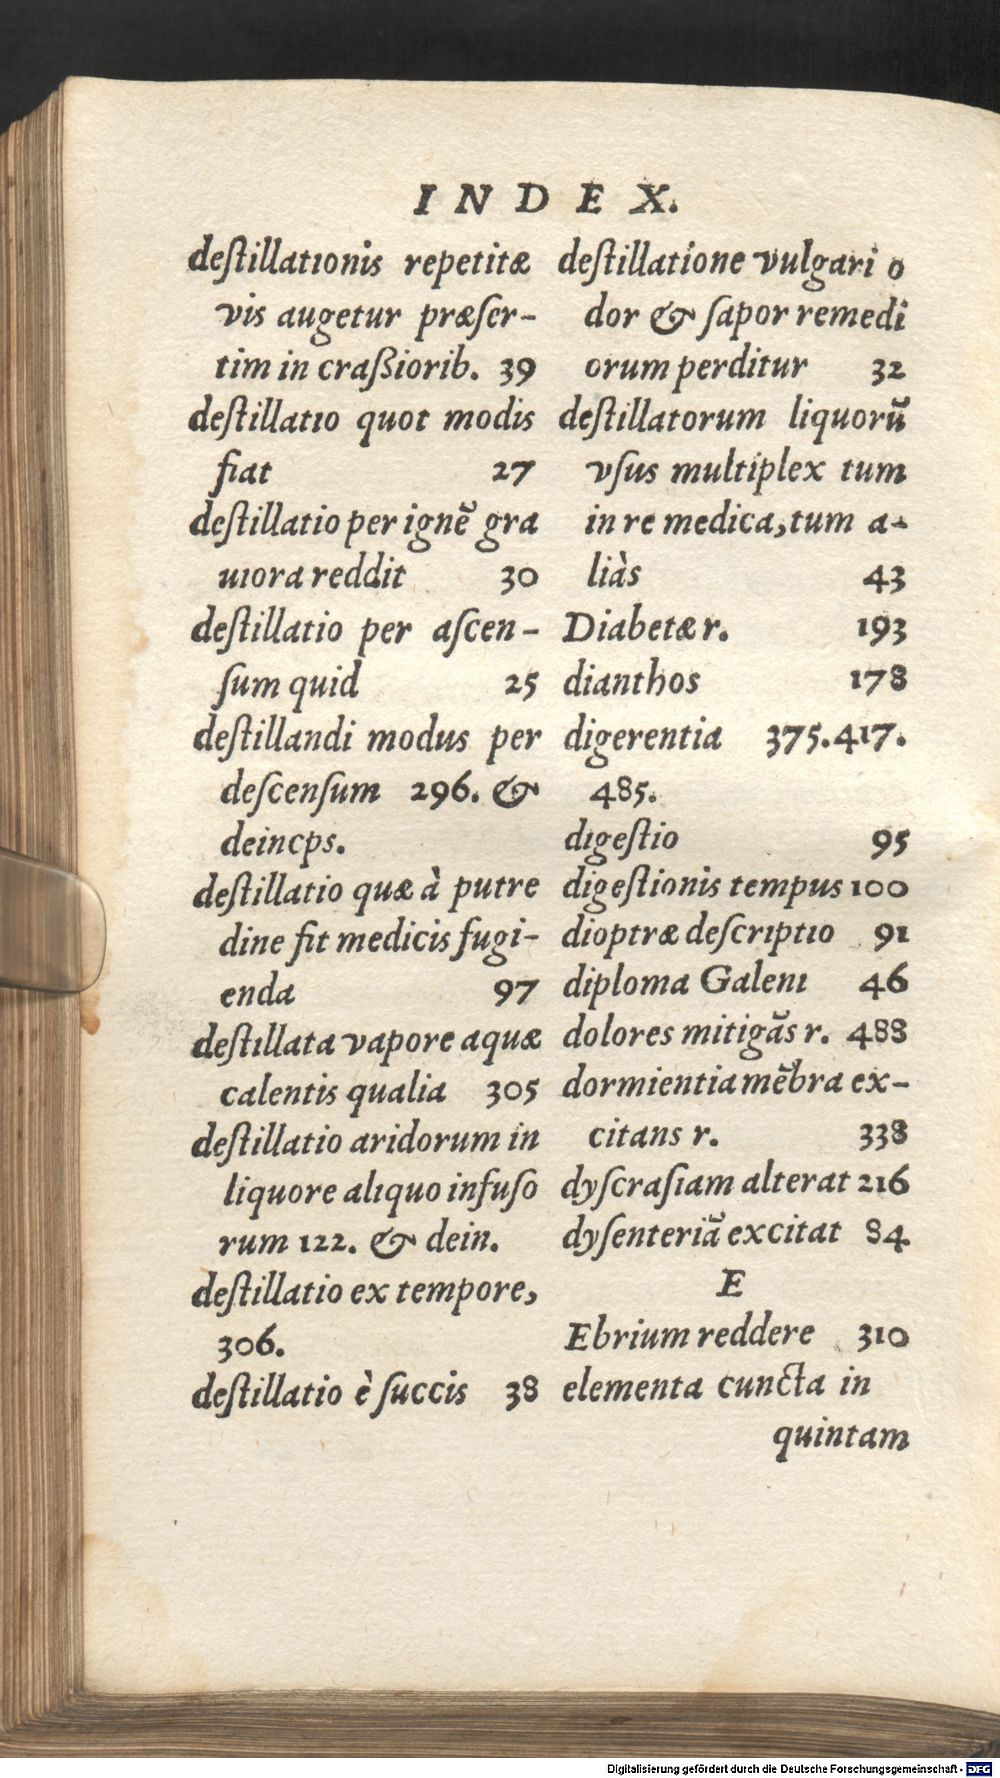 INDEX.
deſtillationis repetitæ
vis augetur præſer-
tim in craßiorib. 39
deſtillatio quot modis
fiat 27
deſtillatio per ignē gra
uiora reddit 30
deſtillatio per aſcen-
ſum quid 25
deſtillandi modus per
deſcenſum 296. &
deincps.
deſtillatio quæ à putre
dine fit medicis fugi-
enda 97
deſtillata vapore aquæ
calentis qualia 305
deſtillatio aridorum in
liquore aliquo infuſo
rum 122. & dein.
deſtillatio ex tempore,
306.
deſtillatio è ſuccis 38
deſtillatione vulgari o
dor & ſapor remedi
orum perditur 32
deſtillatorum liquorū
vſus multiplex tum
in re medica, tum a-
liàs 43
Diabetæ r. 193
dianthos 178
digerentia 375. 417.
485.
digeſtio 95
digeſtionis tempus 100
dioptræ deſcriptio 91
diploma Galeni 46
dolores mitigās r. 488
dormientia mēbra ex-
citans r. 338
dyſcraſiam alterat 216
dyſenteriā excitat 84
E
Ebrium reddere 310
elementa cuncta in
quintam
Digitalisierung gefördert durch die Deutsche Forschungsgemeinschaft - DFG